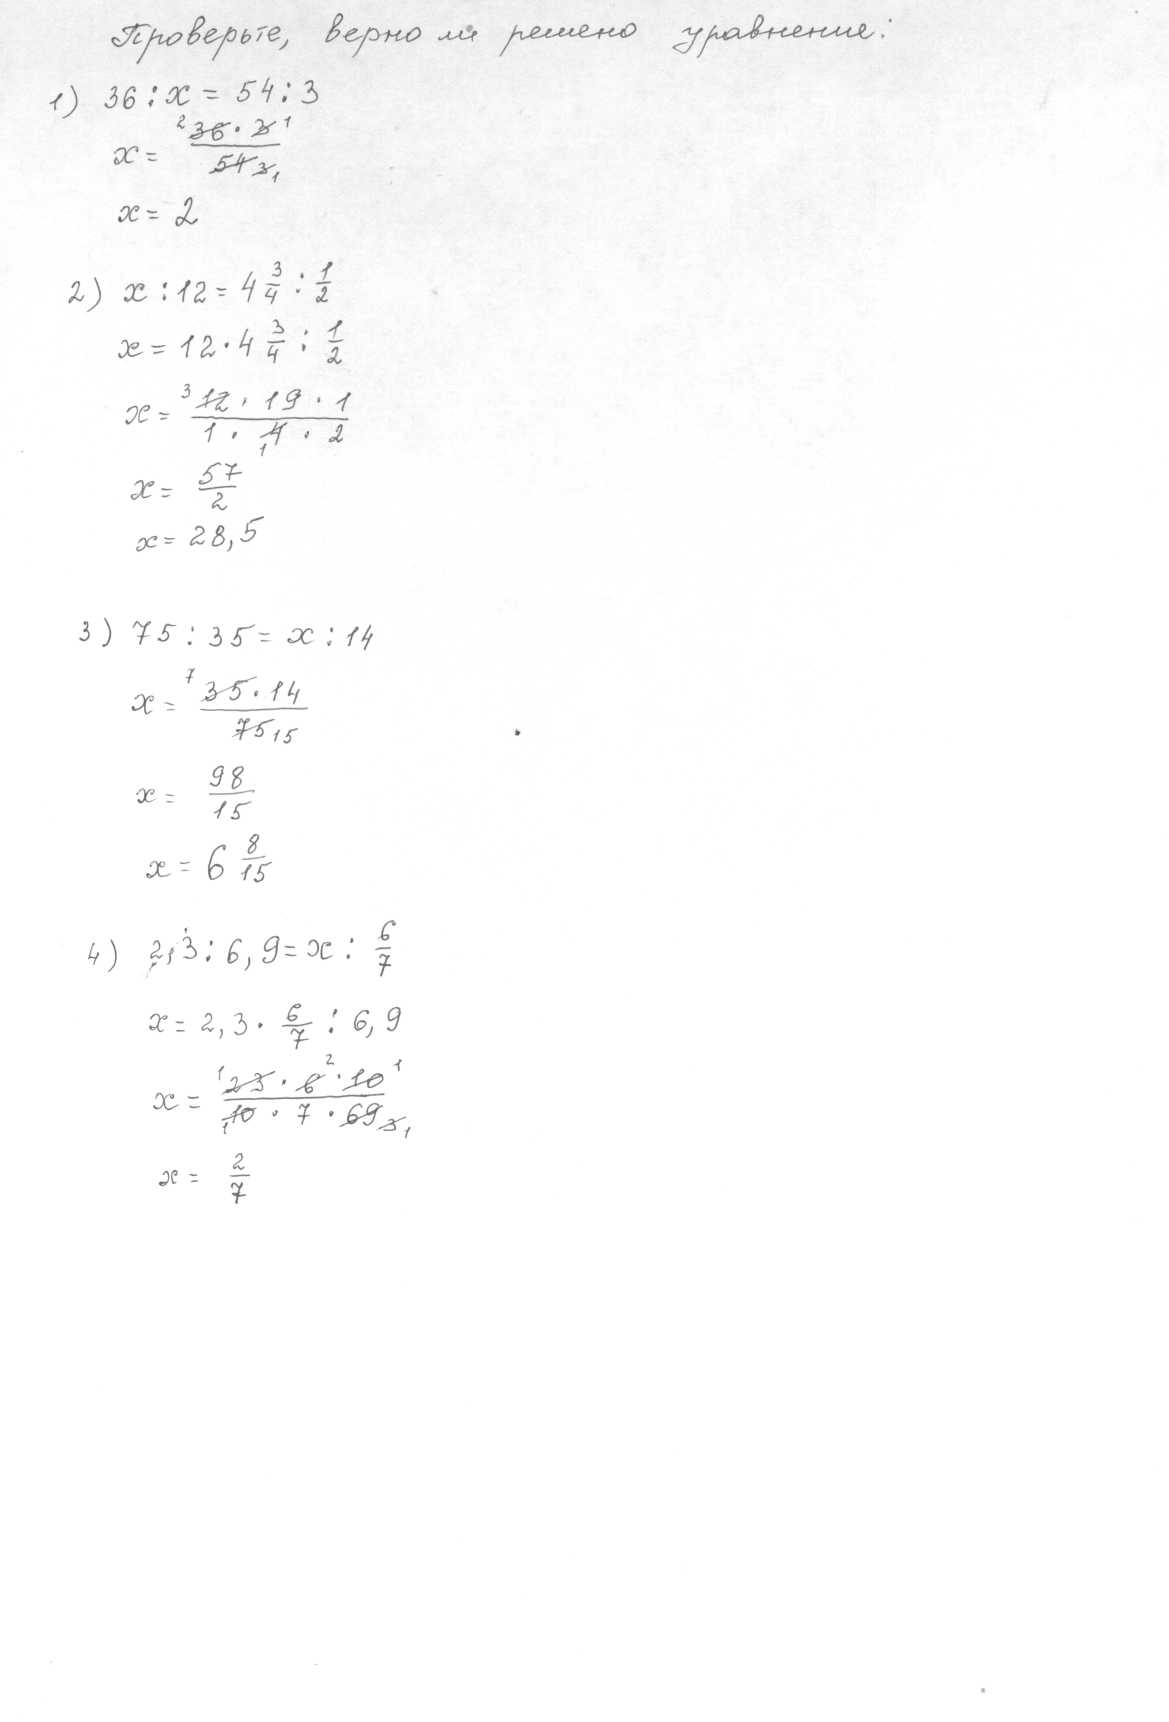 Проверьте, верно ли решено уравнение:
1) 36 : x = 54 : 3
x = ²36 · 3¹ / 54 3 ₁
x = 2
2) x : 12 = 4 3/4 : 1/2
x = 12 · 4 3/4 : 1/2
x = ³12 · 19 · 1 / 1 · ₁4 · 2
x = 57/2
x = 28,5
3) 75 : 35 = x : 14
x = ⁷35 · 14 / 75 ₁₅
x = 98/15
x = 6 8/15
4) 2,3 : 6,9 = x : 6/7
x = 2,3 · 6/7 : 6,9
x = ¹23 · 6² · 10¹ / ₁10 · 7 · 69 3 ₁
x = 2/7